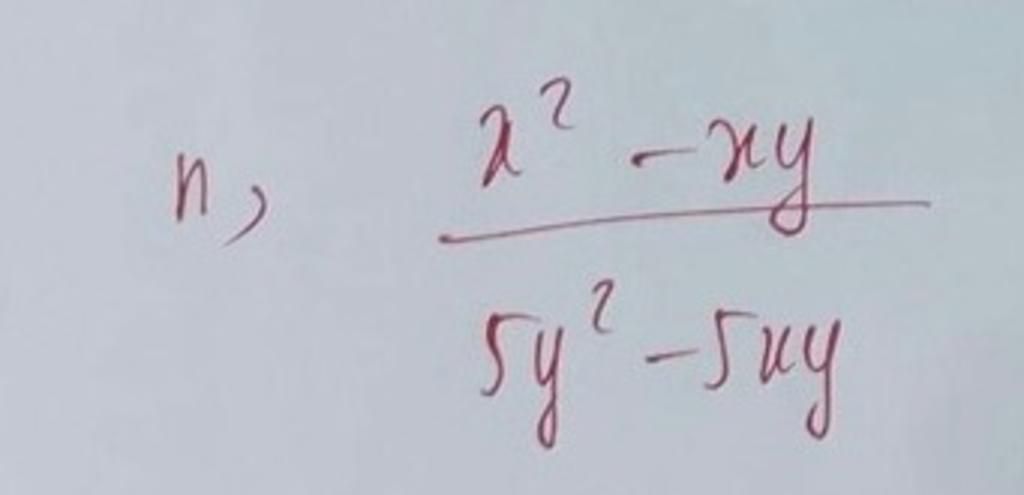 n, x² - xy
5y² - 5xy